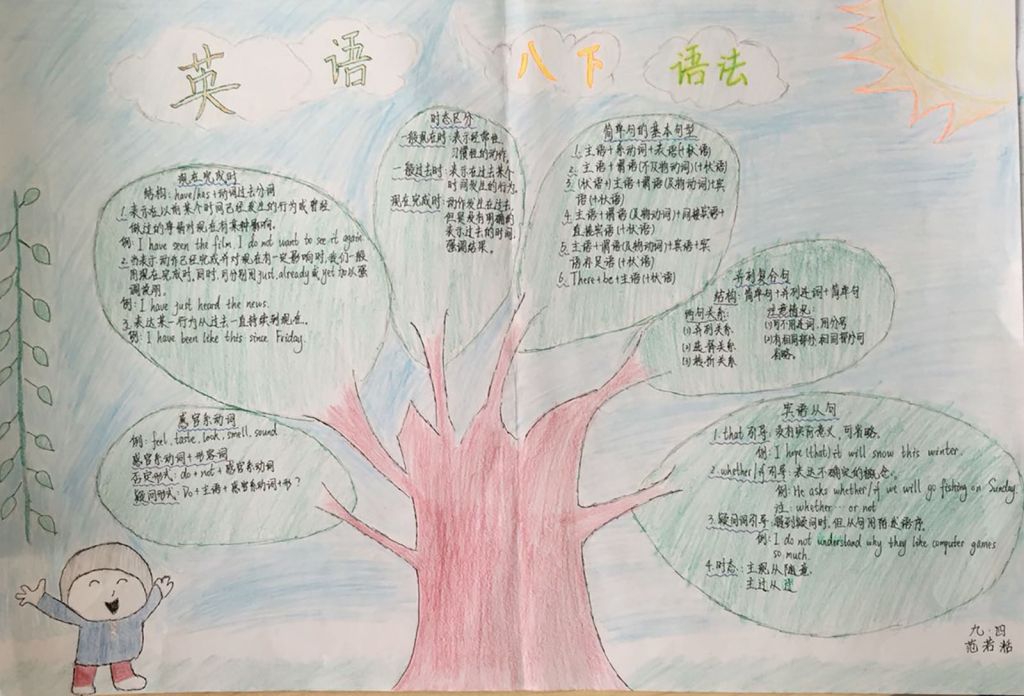 英语 八下 语法
现在完成时
结构: have/has+动词过去分词
1.表示在以前某个时间已经发生的行为或曾经
做过的事情对现在有某种影响。
例: I have seen the film. I do not want to see it again.
2.当表示动作已经完成并对现在有一定影响时,我们一般
用现在完成时,同时,可分别用just, already或yet加以强
调说明。
例: I have just heard the news.
3.表达某一行为从过去一直持续到现在。
例: I have been like this since Friday.
时态区分
一般现在时:表示经常性,
习惯性的动作。
一般过去时:表示在过去某个
时间发生的行为.
现在完成时:动作发生在过去,
但是没有明确的
表示过去的时间,
强调结果。
简单句的基本句型
1.主语+系动词+表语(+状语)
2.主语+谓语(不及物动词)(+状语)
3.(状语+)主语+谓语(及物动词)+宾
语(+状语)
4.主语+谓语(及物动词)+间接宾语+
直接宾语(+状语)
5.主语+谓语(及物动词)+宾语+宾
语补足语(+状语)
6.There+be+主语(+状语)
并列复合句
结构:简单句+并列连词+简单句
两句关系:
(1)并列关系
(2)选择关系
(3)转折关系
注意情况:
(1)可不用连词,用分号
(2)有相同部分,相同部分可
省略。
感官系动词
例: feel, taste, look, smell, sound
感官系动词+形容词
否定形式: do+not+感官系动词
疑问形式: Do+主语+感官系动词+形?
宾语从句
1.that引导:没有实际意义,可省略。
例: I hope (that) it will snow this winter.
2.whether/if引导:表达不确定的概念。
例: He asks whether/if we will go fishing on Sunday.
注: whether…or not
3.疑问词引导:遇到疑问时,但从句用陈述语序。
例: I do not understand why they like computer games
so much.
4.时态:主现从随意,
主过从过
九·四
范若